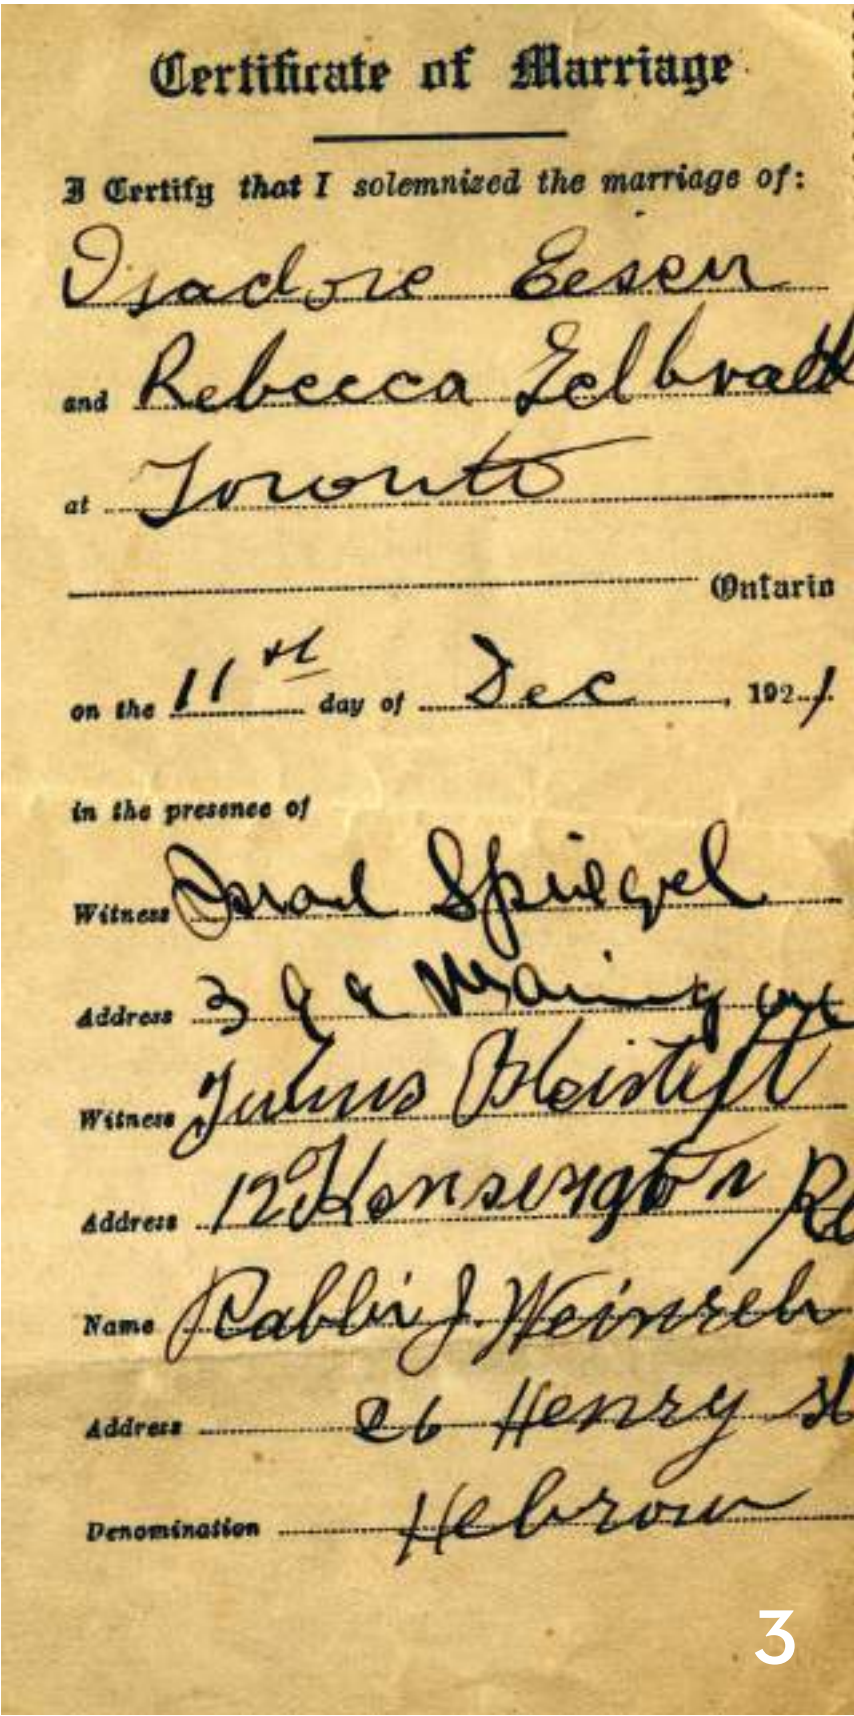 Certificate of Marriage
I Certify that I solemnized the marriage of:
Isadore Eisen
and Rebecca Gelbratt
at Toronto
Ontario
on the 11st day of Dec, 1921
in the presence of
Witness Israel Spiegel
Address 3
Witness Julius Bleistift
Address 12 Kensington Rd
Name Rabbi J. Weinreb
Address 26 Henry st
Denomination Hebrow
3